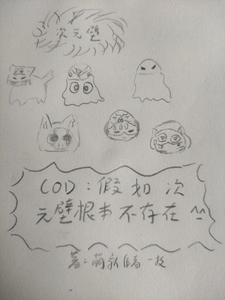 次元壁
COD：假如次
元壁根本不存在 ^^
著：萌新